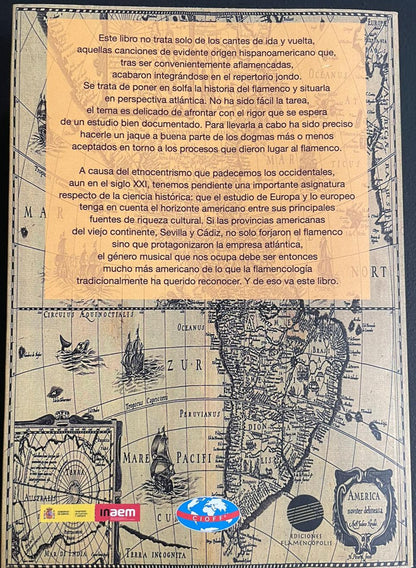 Este libro no trata solo de los cantes de ida y vuelta,
aquellas canciones de evidente origen hispanoamericano que,
tras ser convenientemente aflamencadas,
acabaron integrándose en el repertorio jondo.
Se trata de poner en solfa la historia del flamenco y situarla
en perspectiva atlántica. No ha sido fácil la tarea,
el tema es delicado de afrontar con el rigor que se espera
de un estudio bien documentado. Para llevarla a cabo ha sido preciso
hacerle un jaque a buena parte de los dogmas más o menos
aceptados en torno a los procesos que dieron lugar al flamenco.
A causa del etnocentrismo que padecemos los occidentales,
aun en el siglo XXI, tenemos pendiente una importante asignatura
respecto de la ciencia histórica: que el estudio de Europa y lo europeo
tenga en cuenta el horizonte americano entre sus principales
fuentes de riqueza cultural. Si las provincias americanas
del viejo continente, Sevilla y Cádiz, no solo forjaron el flamenco
sino que protagonizaron la empresa atlántica,
el género musical que nos ocupa debe ser entonces
mucho más americano de lo que la flamencología
tradicionalmente ha querido reconocer. Y de eso va este libro.
MAR
NORT
CIRCULUS AEQUINOCTIALIS
OCEANUS
ZUR
Tropicus Capricorni
PERUVIANUS
MARE PACIFI
TERRA
AUSTRALIS
inaem
CIOFF
EDICIONES
FLAMENCÓPOLIS
AMERICA
noviter delineata
MAR DE INDIA
TERRA INCOGNITA